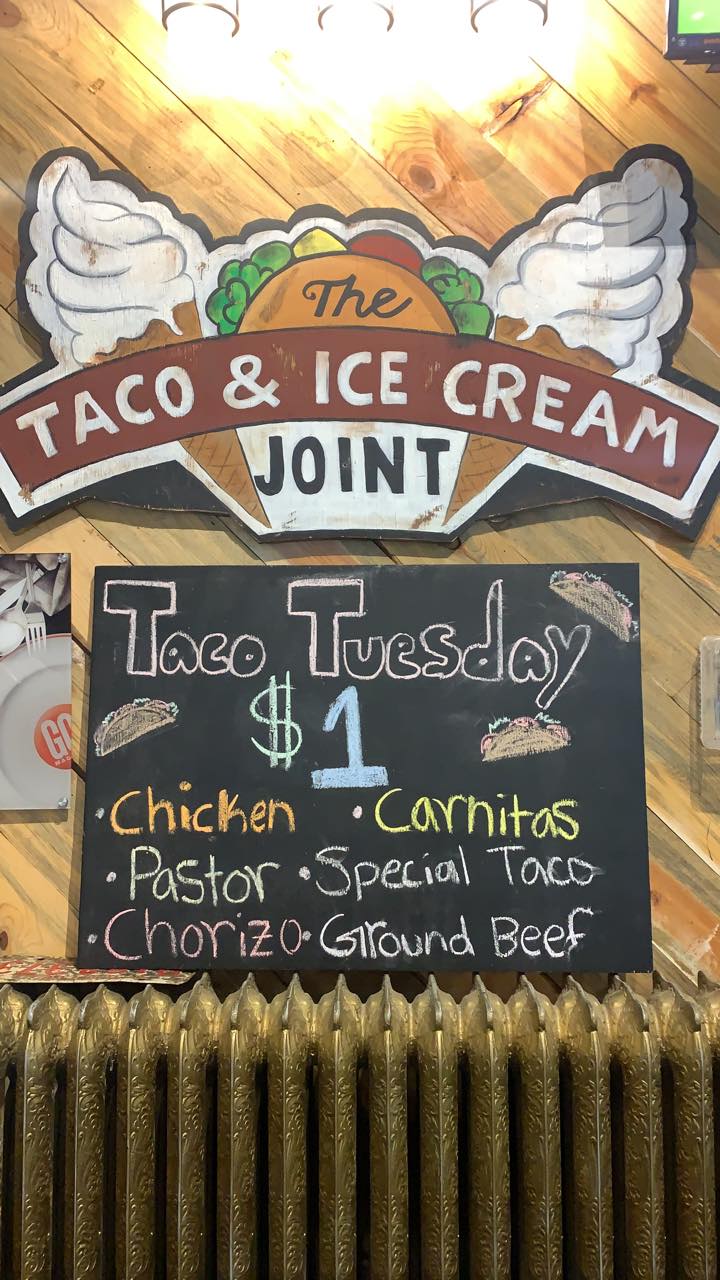 The
TACO & ICE CREAM
JOINT
Taco Tuesday
$1
• Chicken • Carnitas
• Pastor • Special Taco
• Chorizo • Ground Beef
GO